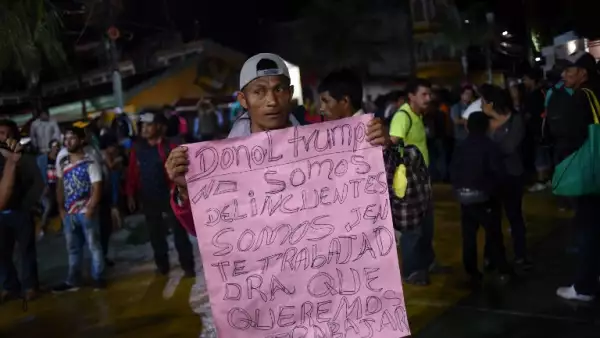 DONOL trump
NO SOMOS
DELINCUENTES
SOMOS JEN
TE TRABAJAD
ORA QUE
QUEREMOS
TRABAJAR